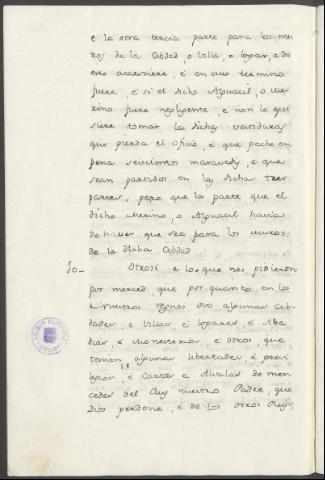 e la otra tercia parte para los mu-
ros de la Cibdad, o Villa, o logar, ado
esto acaesciere, é en cuio termino
fuere, é si el dicho Alguacil, o Me-
rino fuere negligente, é non le qui
siere tomar las dichas vestiduras
que pierda el oficio, é que peche en
pena seiscientos maravedis, e que
sean partidos en las dichas tres
partes; pero que la parte que el
dicho Merino, o Alguacil havia
de haver que sea para los muros
de la dicha Cibdad
30- Otrosi, a lo que nos pidieron
por merced que por quanto en los
nuestros regnos ovo algunas Cib-
dades, e Villas, é logares, é Aba
dias, é Monesterios, é otros que
tenian algunas libertades, é previ
legios, é Cartas e Alvalas de mer-
cedes del Rey nuestro Padre, que
Dios perdone, é de los otros Reys,